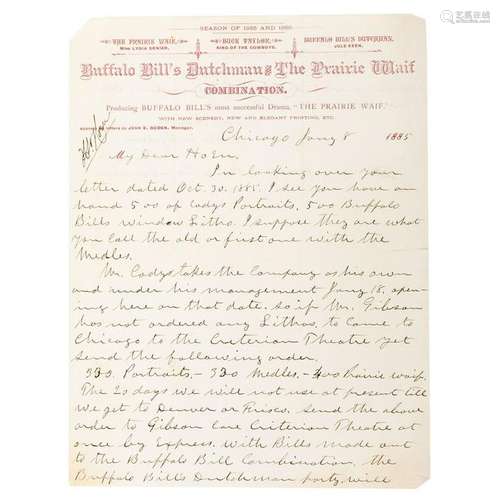 SEASON OF 1885 AND 1886.
THE PRAIRIE WAIF,
Miss LYDIA DENIER.
BUCK TAYLOR,
KING OF THE COWBOYS.
BUFFALO BILL'S DUTCHMAN,
JULE KEEN.
Buffalo Bill's Dutchman & The Prairie Waif
COMBINATION.
Producing BUFFALO BILL'S most successful Drama, "THE PRAIRIE WAIF,"
WITH NEW SCENERY, NEW AND ELEGANT PRINTING, ETC.
letters to JOHN E. Manager.
Chicago Jany 8 1885
My Dear Hoen.
In looking over your
letter dated Oct. 30. 1885. I see you have on
hand 500 of Codys Portraits, 500 Buffalo
Bills Window Litho. I suppose they are what
you call the old or first one with the
Medles.
Mr. Codys takes the Company as his own
and under his management Jany 18. open-
ing here on that date. so if Mr. Gibson
has not ordered any Lithos. to come to
Chicago to the Criterion Theatre yet
send the following order.
300. Portraits. - 300 Medles. - 400 Prairie waif.
The 20 days we will not use at present till
we get to Denver or Frisco. Send the above
order to Gibson Care Criterion Theatre at
once by Express. With Bills made out
to the Buffalo Bill Combination, the
Buffalo Bills Dutchman party will